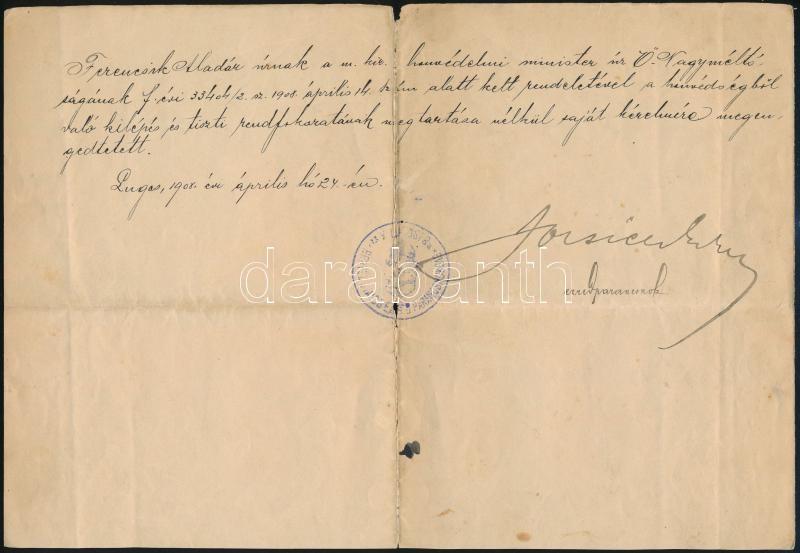 Ferencsik Aladár úrnak a m. kir. honvédelmi minister úr Ő Nagymélto-
ságának f. évi 33404/2. sz. 1908 április 14. szám alatt kelt rendeletével a honvédségből
való kilépés és tiszti rendfokozatának megtartása nélkül saját kérelmére megen-
gedtetett.
Lugos, 1908. évi április hó 24.-én.
darabanth